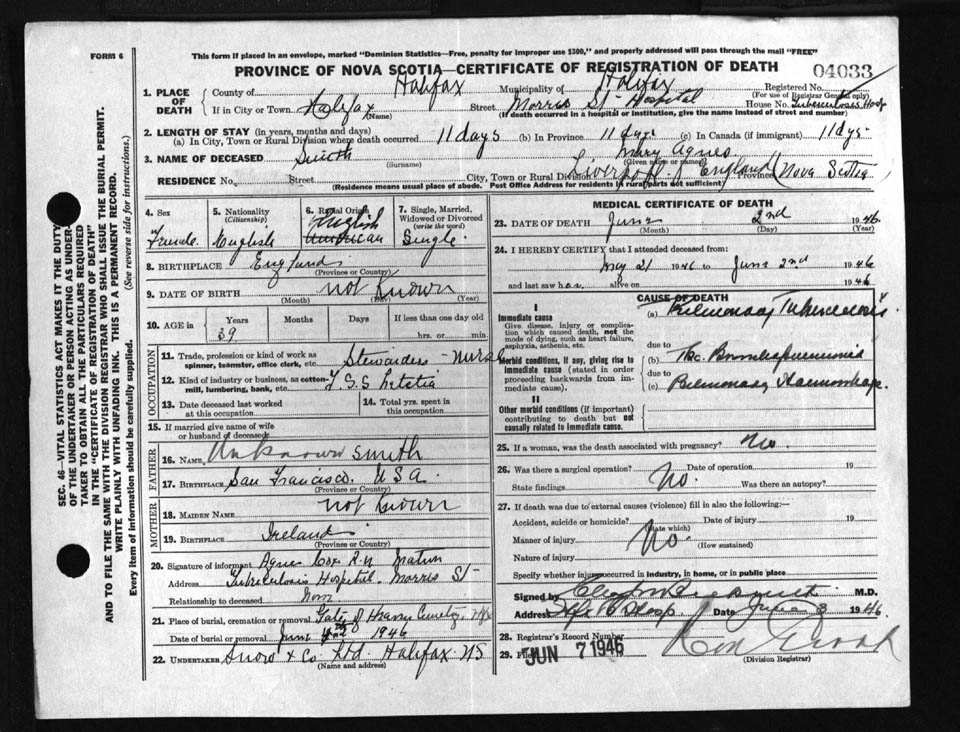 FORM 6
This form if placed in an envelope, marked "Dominion Statistics—Free, penalty for improper use $300," and properly addressed will pass through the mail "FREE"
PROVINCE OF NOVA SCOTIA—CERTIFICATE OF REGISTRATION OF DEATH
04033
1. PLACE OF DEATH
County of Halifax Municipality of Halifax Registered No.
(For use of Registrar General only)
If in City or Town Halifax Street Morris St - Hospital House No. Tuberculosis Hosp
(Name) (If death occurred in a hospital or institution, give the name instead of street and number)
2. LENGTH OF STAY (in years, months and days)
(a) In City, Town or Rural Division where death occurred 11 days (b) In Province 11 dys (c) In Canada (if immigrant) 11 dys
3. NAME OF DECEASED Smith Mary Agnes
(Surname) (Given name or names)
RESIDENCE No. Street City, Town or Rural Division Liverpool England Province (Nova Scotia
(Residence means usual place of abode. Post Office Address for residents in rural parts not sufficient)
4. Sex
Female
5. Nationality
(Citizenship)
English
6. Racial Origin
English
American
7. Single, Married, Widowed or Divorced
(write the word)
Single
8. BIRTHPLACE England
(Province or Country)
9. DATE OF BIRTH not known
(Month) (Day) (Year)
10. AGE in Years Months Days If less than one day old
39 hrs. or min.
OCCUPATION
11. Trade, profession or kind of work as spinner, teamster, office clerk, etc. Stewardess - Nurse
12. Kind of industry or business, as cotton-mill, lumbering, bank, etc. T.S.S Letitia
13. Date deceased last worked at this occupation
14. Total yrs. spent in this occupation
15. If married give name of wife or husband of deceased
FATHER
16. NAME Unknown Smith
17. BIRTHPLACE San Francisco. U S A.
MOTHER
18. MAIDEN NAME not known
19. BIRTHPLACE Ireland
(Province or Country)
20. Signature of informant Agnes Cox R.N Matron
Address Tuberculosis Hospital. Morris St -
Relationship to deceased None
21. Place of burial, cremation or removal Gate of Heaven Cemetery. Hfx
Date of burial or removal June 1946
22. UNDERTAKER Snow & Co Ltd. Halifax NS
(Name and address)
MEDICAL CERTIFICATE OF DEATH
23. DATE OF DEATH June 2nd 1946
(Month) (Day) (Year)
24. I HEREBY CERTIFY that I attended deceased from:
May 21 1946 to June 2nd 1946
and last saw h alive on 1946
CAUSE OF DEATH
I
Immediate cause
Give disease, injury or complication which caused death, not the mode of dying, such as heart failure, asphyxia, asthenia, etc.
(a) Pulmonary Tuberculosis
due to
Morbid conditions, if any, giving rise to immediate cause (stated in order proceeding backwards from immediate).
(b) Tbc. Bronchopneumonia
due to
(c) Pulmonary Haemorrhage
II
Other morbid conditions (if important) contributing to death but not causally related to immediate cause.
25. If a woman, was the death associated with pregnancy? No
26. Was there a surgical operation? Date of operation 19
State findings No. Was there an autopsy?
27. If death was due to external causes (violence) fill in also the following:—
Accident, suicide or homicide? Date of injury 19
(State which)
Manner of injury No.
(How sustained)
Nature of injury
Specify whether injury occurred in industry, in home, or in public place
Signed by M.D.
Address Date June 3 1946
28. Registrar's Record Number
29. Filed JUN 7 1946
(Division Registrar)
SEC. 46—VITAL STATISTICS ACT MAKES IT THE DUTY
OF THE UNDERTAKER OR PERSON ACTING AS UNDERTAKER TO OBTAIN ALL THE PARTICULARS REQUIRED
IN THE "CERTIFICATE OF REGISTRATION OF DEATH"
AND TO FILE THE SAME WITH THE DIVISION REGISTRAR WHO SHALL ISSUE THE BURIAL PERMIT.
WRITE PLAINLY WITH UNFADING INK. THIS IS A PERMANENT RECORD.
Every item of information should be carefully supplied. (See reverse side for instructions.)